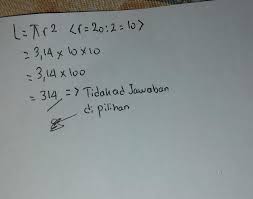 L = πr² <r = 20 : 2 = 10>
= 3,14 x 10 x 10
= 3,14 x 100
= 314 => Tidak ad Jawaban
di pilihan